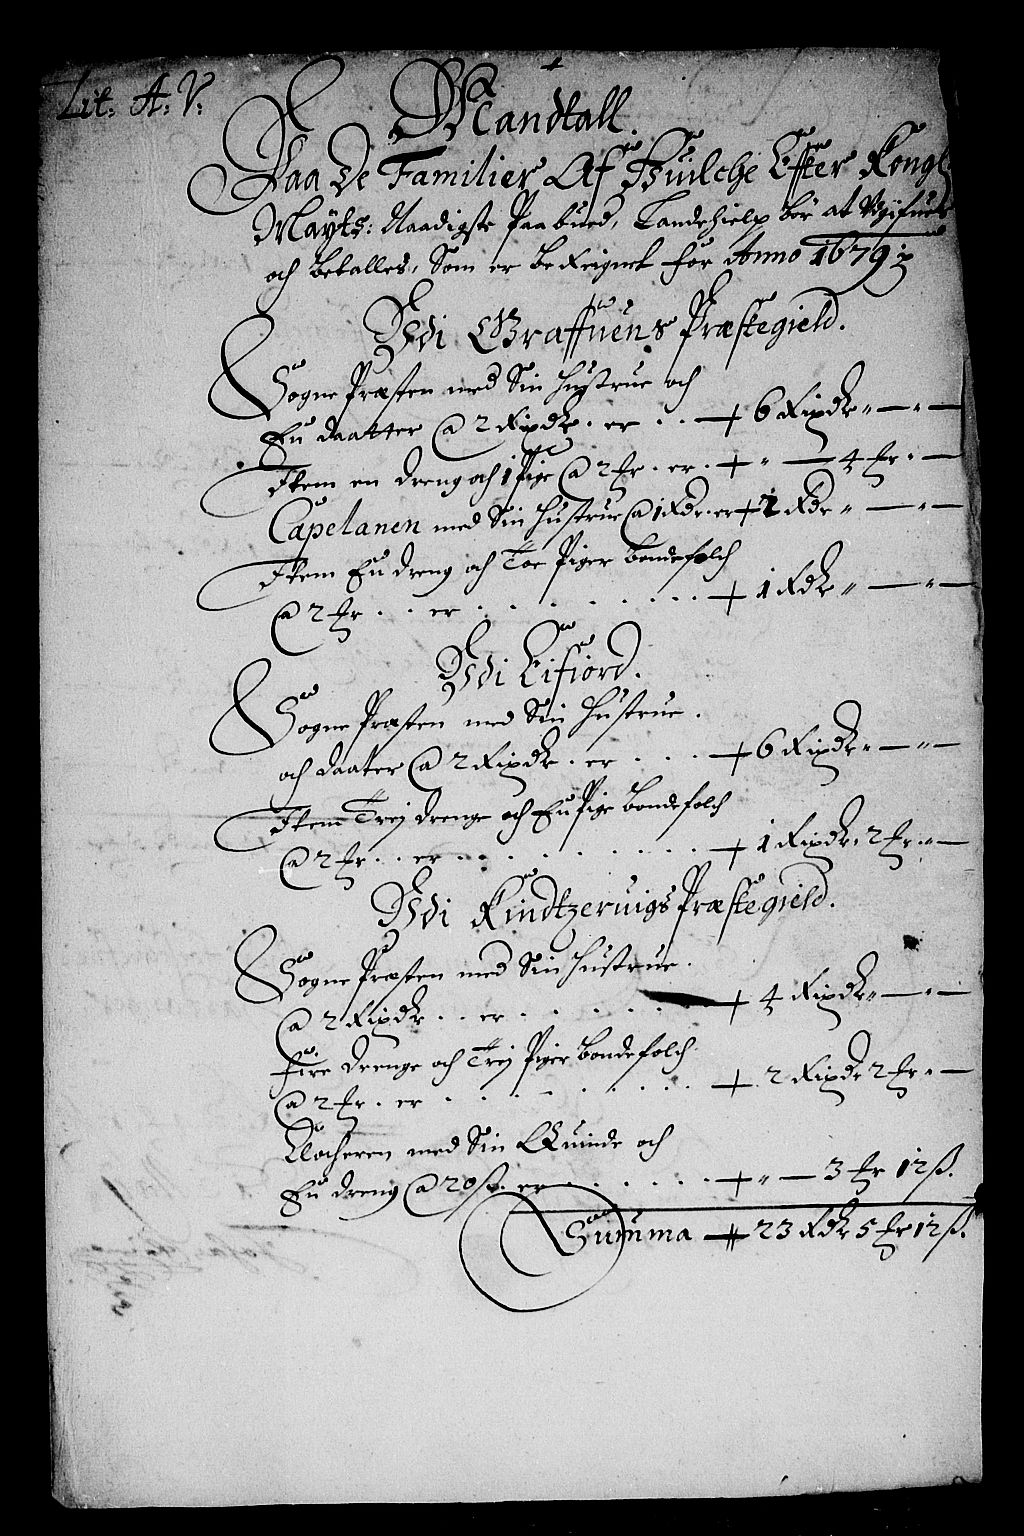 Lit: A: V:
Mandtall.
Paa De Familier Af Huilche Effter Kongl
Mayts: Naadigste Paabued, Landehielp bør at Vdgifues
och betalles, Som er bereignet for Anno 1679
Vdi Graffuens Præstegield.
Sogne Præsten med Sin Hustrue och
Eu daatter @ 2 Rixdr. er . . 6 Rixdr „ — „ —
Item en dreng och 1 Pige @ 2 ħr. er . „ — 4 ħr „ —
Capelanen med Sin Hustrue @ 1 Rdr. er 2 Rdr „ — „ —
Item Eu dreng och Toe Piger bondefolch
@ 2 ħr . . er . . . . . . . 1 Rdr „ — „ —
Vdi Eifiord.
Sogne Præsten med Sin Hustrue .
och daater @ 2 Rixdr . er . . . 6 Rixdr „ — „ —
Item Trej drenge och Eu Pige bondefolch
@ 2 ħr . . er . . . . . . . . 1 Rixdr. 2 ħr „ —
Vdi Kindtzeruigs Præstegield.
Sogne Præsten med Sin Hustrue .
@ 2 Rixdr . . er . . . . . 4 Rixdr „ — „ —
Fire drenge och Trej Piger bondefolch
@ 2 ħr . er . . . . . . . 2 Rixdr 2 ħr „ —
Klocheren med Sin Quinde och
Eu dreng @ 20 ß. er . . . . . . „ — 3 ħr 12 ß.
Summa 23 Rdr 5 ħr 12 ß.